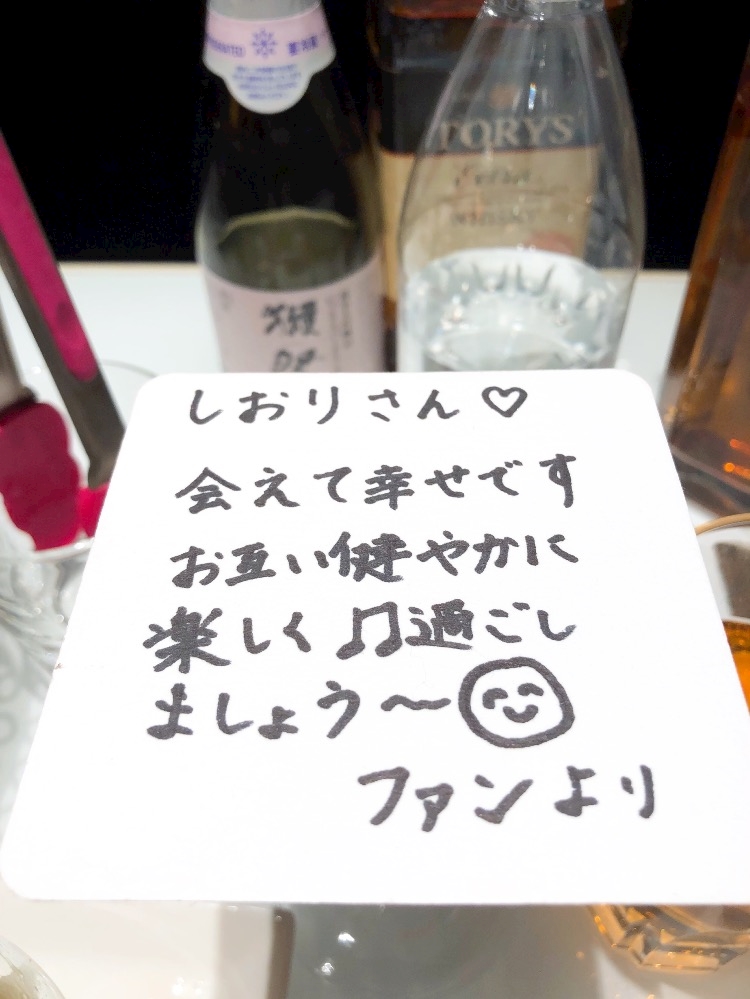 TORYS
Extra
WHISKY
獺
しおりさん♡
会えて幸せです
お互い健やかに
楽しく♫過ごし
ましょう〜😊
ファンより